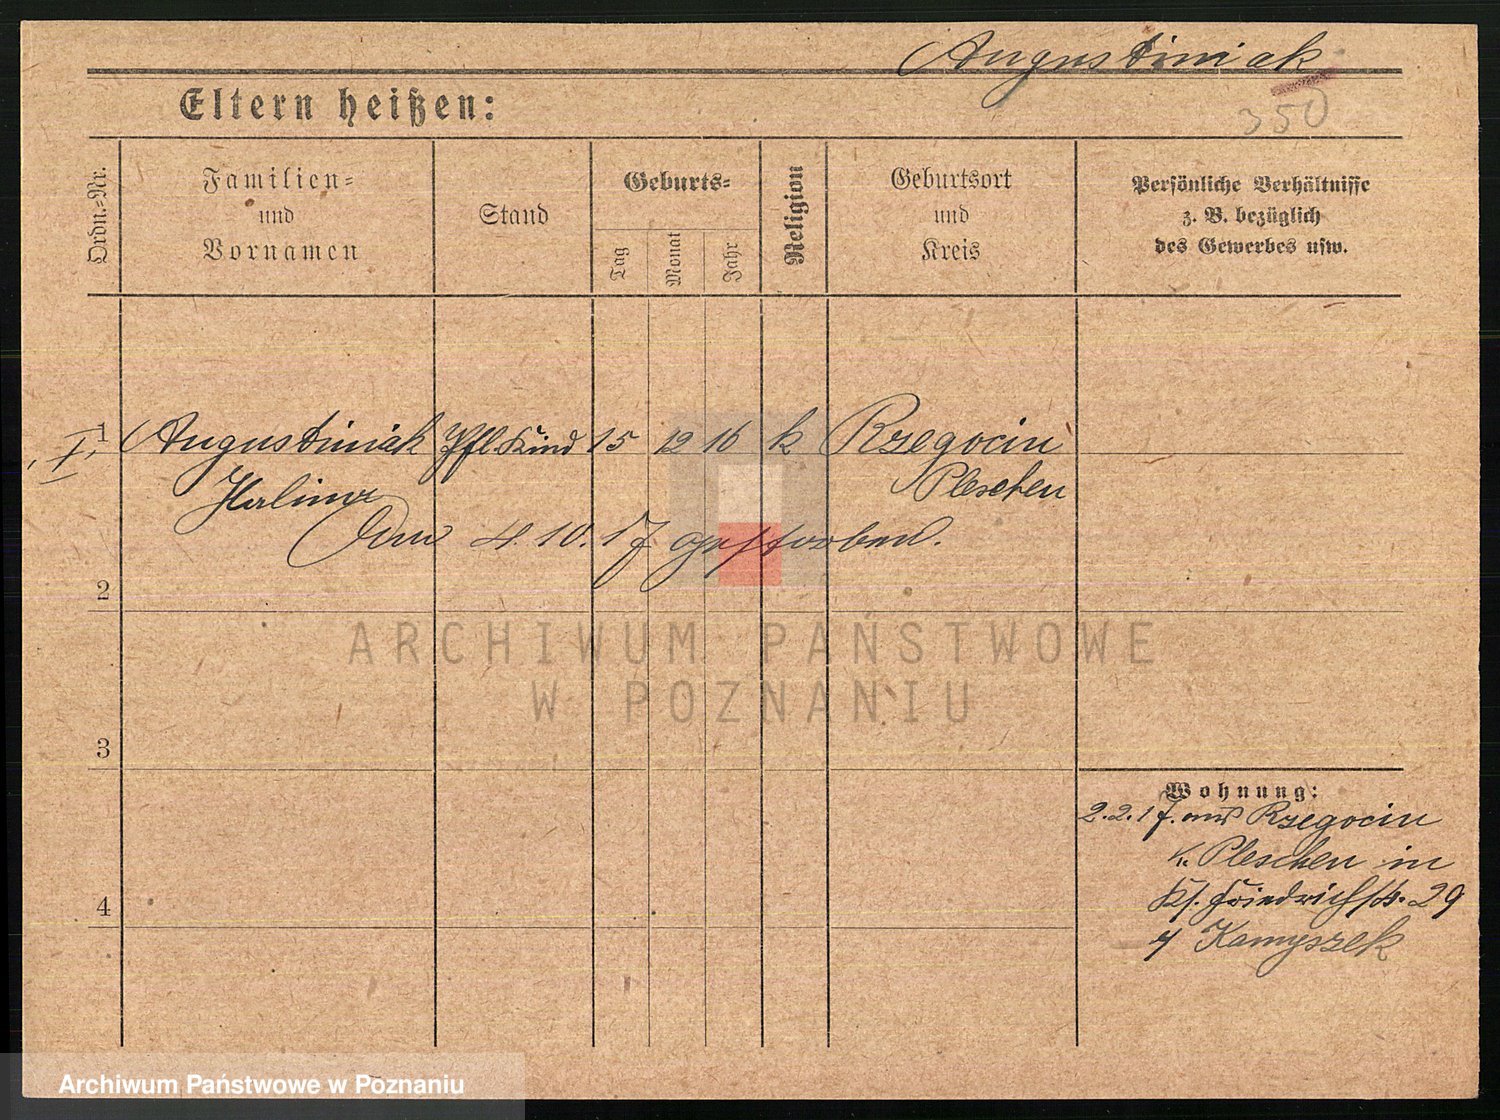 Augustiniak
350
Eltern heißen:
Ordn.=Nr.
Familien=
und
Vornamen
Stand
Geburts=
Tag
Monat
Jahr
Religion
Geburtsort
und
Kreis
Persönliche Verhältnisse
z. B. bezüglich
des Gewerbes usw.
I, 1 Augustiniak Pfl. Kind 15 12 16 k Rzegocin
Halina Pleschen
Am 4.10.17 gestorben.
2
ARCHIWUM PAŃSTWOWE
W POZNANIU
3
Wohnung:
2.2.17. aus Rzegocin
K. Pleschen in
Ks. Friedrichstr. 29
4
Kamyszek
Archiwum Państwowe w Poznaniu